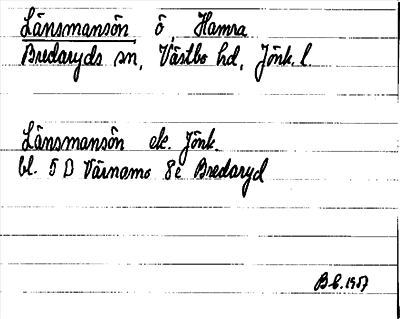 Länsmansön, ö, Hamra
Bredaryds sn, Västbo hd, Jönk. l.
Länsmansön ek. Jönk.
bl. 5 D Värnamo 8 e Bredaryd
1957